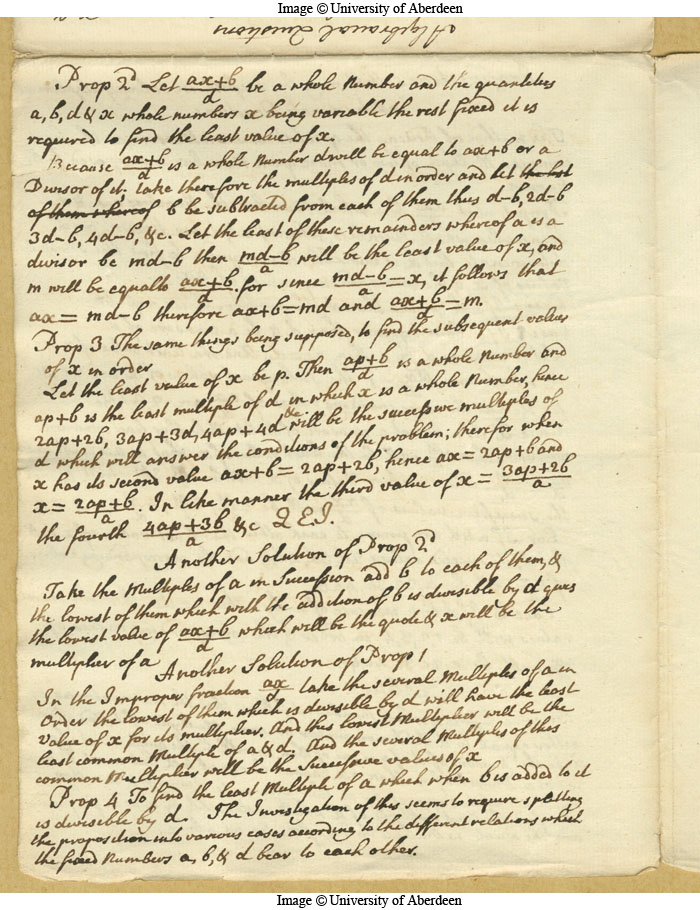 Image © University of Aberdeen
Algebraical Questions
Prop 2d Let (ax+b)/d be a whole Number and the quantities
a, b, d & x whole numbers x being variable the rest fixed it is
required to find the least value of x.
Because (ax+b)/d is a whole Number d will be equal to ax+b or a
Divisor of it. take therefore the multiples of d in order and let the list
of them whereof b be subtracted from each of them thus d-b, 2d-b
3d-b, 4d-b, &c. Let the least of these remainders whereof a is a
divisor be md-b then (md-b)/a will be the least value of x, and
m will be equall to (ax+b)/d. for since (md-b)/a = x, it follows that
ax = md-b therefore ax+b=md and (ax+b)/d = m.
Prop 3 The same things being supposed, to find the subsequent values
of x in order
Let the least value of x be p. Then (ap+b)/d is a whole Number and
ap+b is the least multiple of d in which x is a whole Number, hence
2ap+2b, 3ap+3d, 4ap+4d &c will be the successive multiples of
d which will answer the conditions of the problem; therefor when
x has its second value ax+b = 2ap+2b, hence ax = 2ap+b and
x = (2ap+b)/a. In like manner the third value of x = (3ap+2b)/a
the fourth (4ap+3b)/a &c Q E I.
Another Solution of Prop 2d
Take the Multiples of a in Succession add b to each of them, &
the lowest of them which with the addition of b is divisible by d gives
the lowest value of (ax+b)/d which will be the quote & x will be the
multiplier of a
Another Solution of Prop 1
In the Improper fraction ax/d take the several Multiples of a in
Order the lowest of them which is divisible by d will have the least
value of x for its multiplier. And this lowest Multiplier will be the
least common Multiple of a & d. And the several Multiples of this
common Multiplier will be the Successive values of x
Prop 4 To find the least Multiple of a which when b is added to it
is divisible by d. The Investigation of this seems to require splitting
the proposition into various cases according to the different relations which
the fixed Numbers a, b, & d bear to each other.
Image © University of Aberdeen